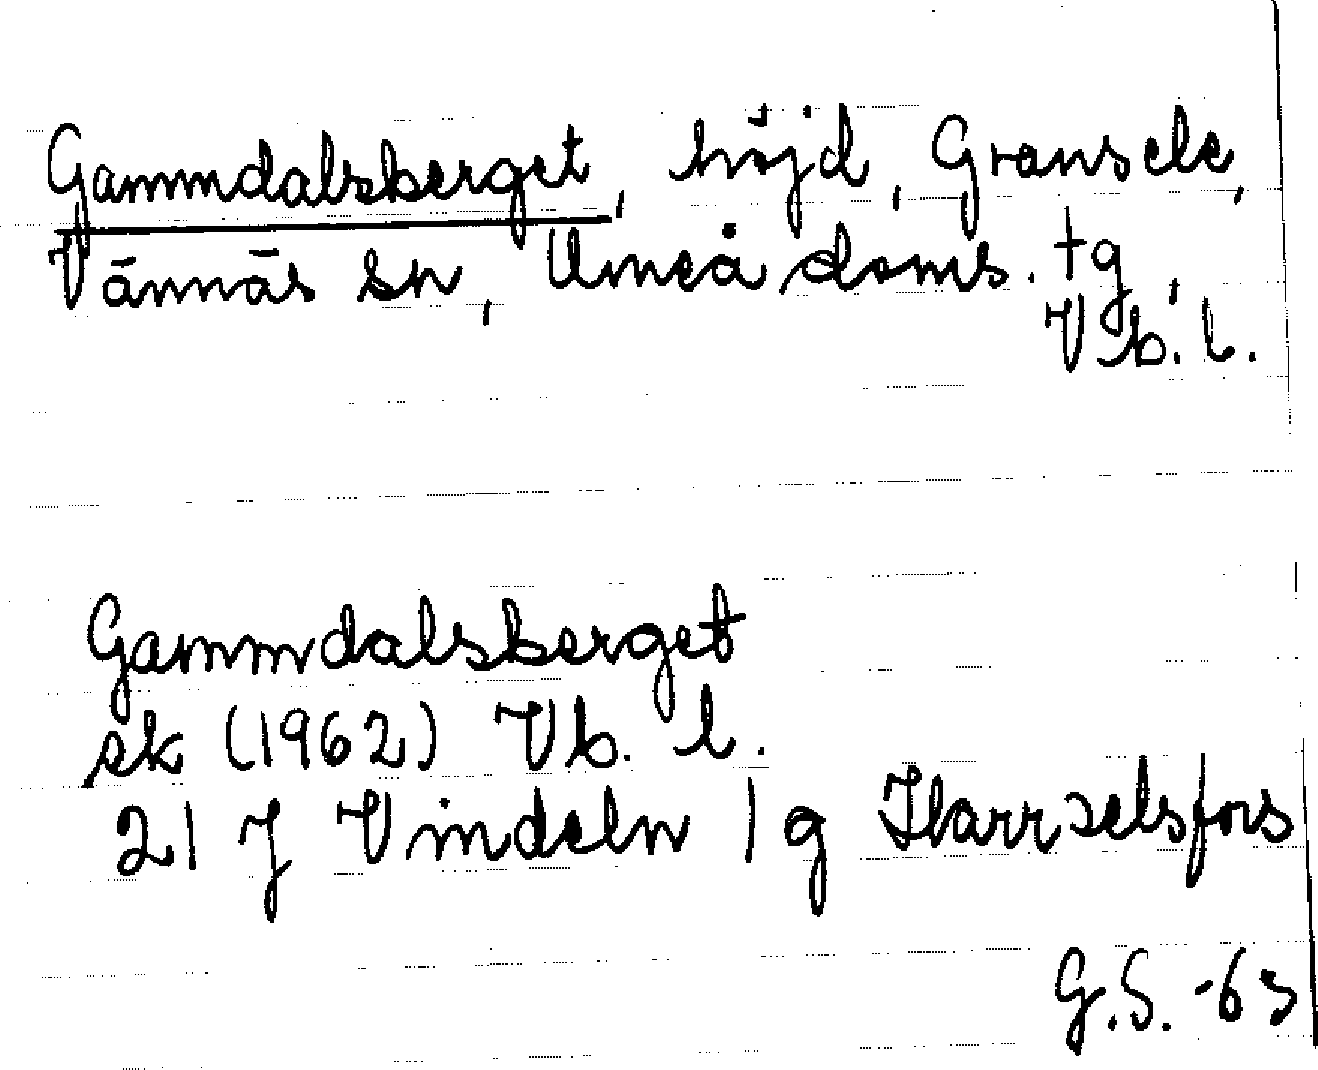 Gammdalsberget, höjd, Gransele,
Vännäs sn, Umeå doms. tg,
Vb. l.
Gammdalsberget
sk (1962) Vb. l.
21 J Vindeln 1 g Harrselsfors
G.S. -63